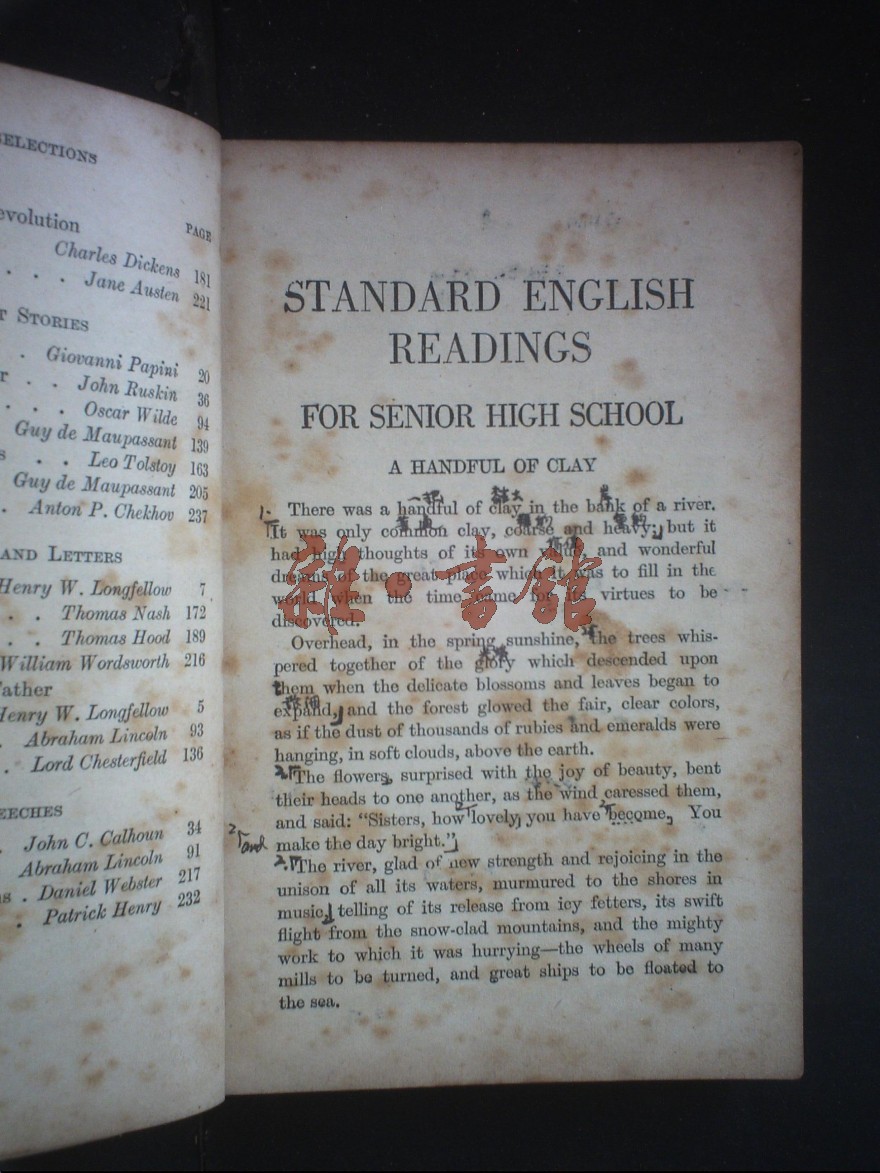 SELECTIONS
evolution PAGE
Charles Dickens 181
. . Jane Austen 221
STORIES
. Giovanni Papini 20
. . John Ruskin 36
. . . Oscar Wilde 94
Guy de Maupassant 139
. . Leo Tolstoy 163
Guy de Maupassant 205
. Anton P. Chekhov 237
AND LETTERS
Henry W. Longfellow 7
. . Thomas Nash 172
. . Thomas Hood 189
William Wordsworth 216
Father
Henry W. Longfellow 5
. Abraham Lincoln 93
. Lord Chesterfield 136
EECHES
. John C. Calhoun 34
Abraham Lincoln 91
. Daniel Webster 217
. Patrick Henry 232
STANDARD ENGLISH
READINGS
FOR SENIOR HIGH SCHOOL
A HANDFUL OF CLAY
一把 黏土
1. There was a handful of clay in the bank of a river.
普通
It was only common clay, coarse and heavy; but it
價值
had high thoughts of its own value, and wonderful
dreams of the great place which it was to fill in the
world when the time came for its virtues to be
discovered.
雜·書館
Overhead, in the spring sunshine, the trees whis-
pered together of the glory which descended upon
them when the delicate blossoms and leaves began to
expand, and the forest glowed the fair, clear colors,
as if the dust of thousands of rubies and emeralds were
hanging, in soft clouds, above the earth.
The flowers, surprised with the joy of beauty, bent
their heads to one another, as the wind caressed them,
and said: "Sisters, how lovely you have become. You
and make the day bright."
The river, glad of new strength and rejoicing in the
unison of all its waters, murmured to the shores in
music, telling of its release from icy fetters, its swift
flight from the snow-clad mountains, and the mighty
work to which it was hurrying—the wheels of many
mills to be turned, and great ships to be floated to
the sea.